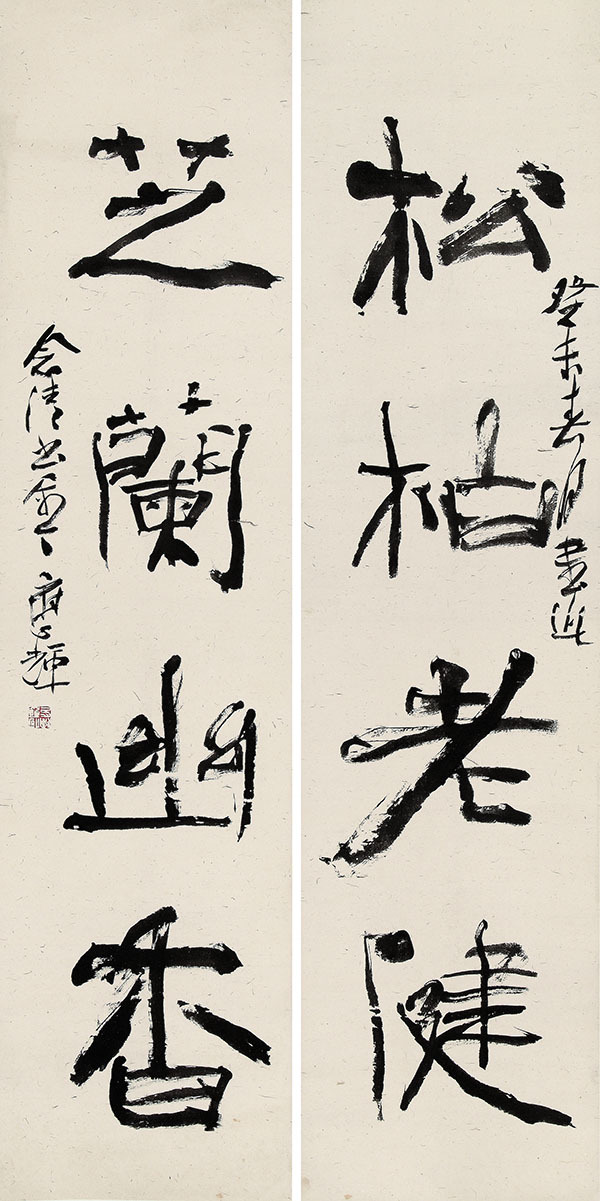 松柏老健
癸未春月書
芝蘭幽香
應輝